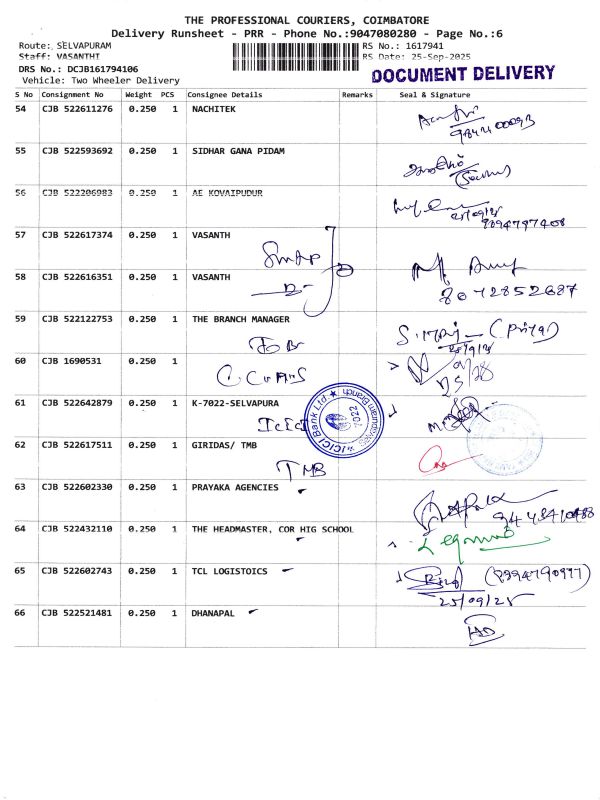 THE PROFESSIONAL COURIERS, COIMBATORE
Delivery Runsheet - PRR - Phone No.:9047080280 - Page No.:6
Route: SELVAPURAM RS No.: 1617941
Staff: VASANTHI RS Date: 25-Sep-2025
DRS No.: DCJB161794106 DOCUMENT DELIVERY
Vehicle: Two Wheeler Delivery
S No Consignment No Weight PCS Consignee Details Remarks Seal & Signature
54 CJB 522611276 0.250 1 NACHITEK
55 CJB 522593692 0.250 1 SIDHAR GANA PIDAM
56 CJB 522206983 0.250 1 AE KOVAIPUDUR
57 CJB 522617374 0.250 1 VASANTH
58 CJB 522616351 0.250 1 VASANTH
8072852687
59 CJB 522122753 0.250 1 THE BRANCH MANAGER
(Priya)
60 CJB 1690531 0.250 1
61 CJB 522642879 0.250 1 K-7022-SELVAPURA
ICICI
ICICI Bank Ltd. 7022
62 CJB 522617511 0.250 1 GIRIDAS/ TMB
TMB
63 CJB 522602330 0.250 1 PRAYAKA AGENCIES
64 CJB 522432110 0.250 1 THE HEADMASTER, COR HIG SCHOOL
65 CJB 522602743 0.250 1 TCL LOGISTOICS
25/09/25
66 CJB 522521481 0.250 1 DHANAPAL